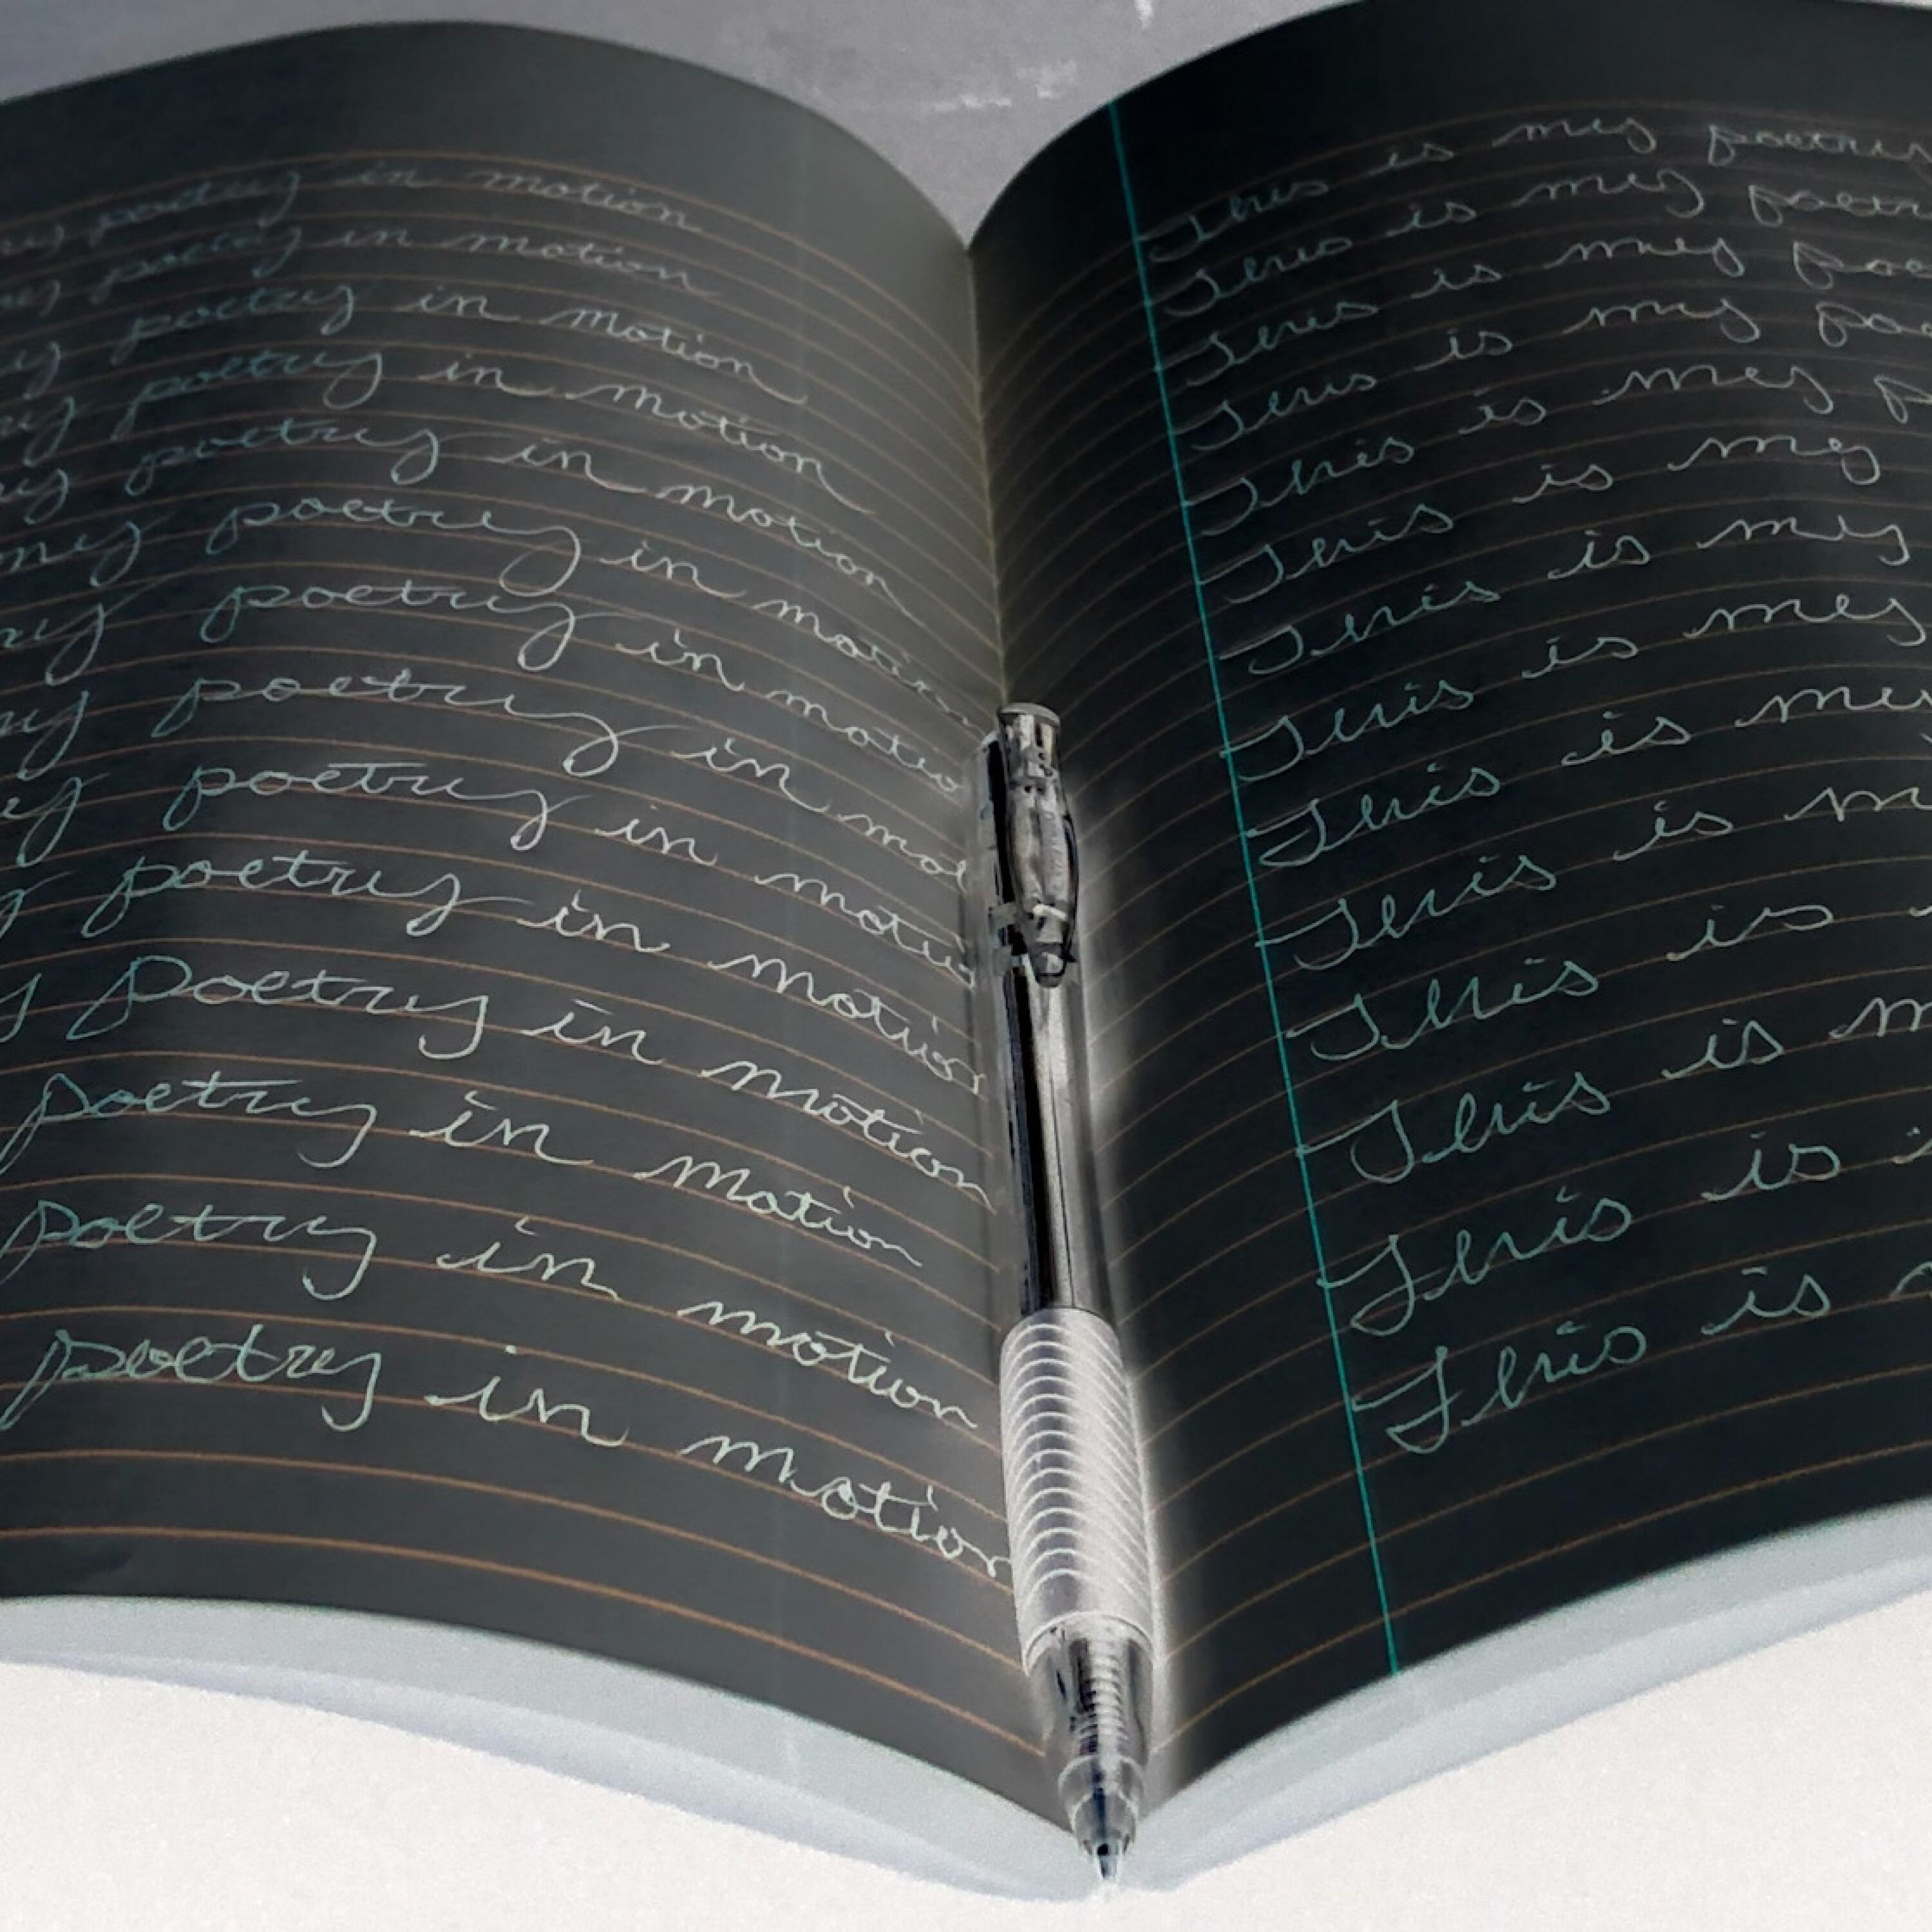 my poetry in motion
my poetry in motion
y poetry in motion
my poetry in motion
my poetry in motion
my poetry in motion
my poetry in motio
my poetry in mot
y poetry in motio
y poetry in motion
y Poetry in motion
poetry in motion
poetry in motion
poetry in motion
This is my poetry
This is my poetr
This is my poe
This is my poe
This is my p
This is my
This is my
This is my
This is my
This is m
This is
This is m
This is
This is